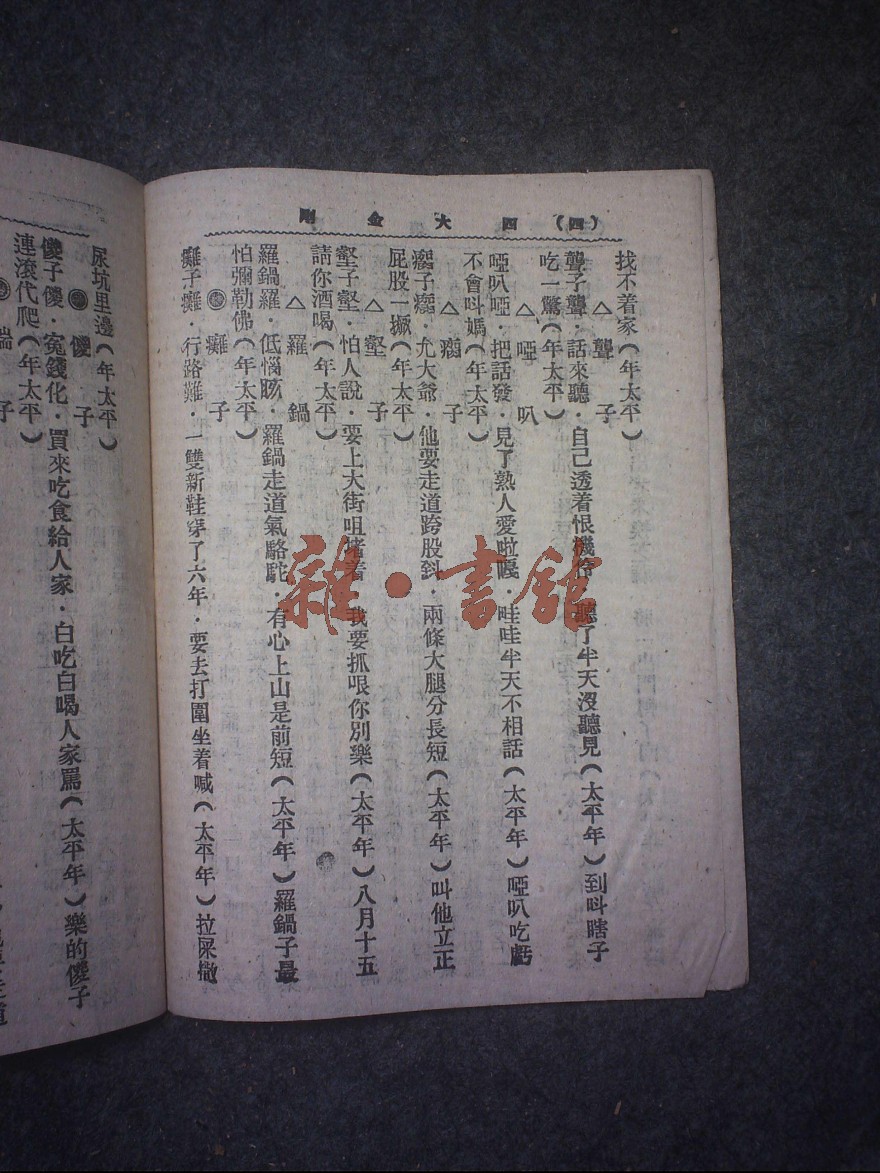 (四) 四大金剛
找不着家(年太平)
△聾子
聾子聾·話來聽·自己透着恨機伶·聽了半天沒聽見(太平年)到呌瞎子
吃一驚(年太平)
△啞叭
啞叭啞·把話發·見了熟人愛啦嘎·哇哇半天不相話(太平年)啞叭吃虧
不會呌媽(年太平)
△瘸子
瘸子瘸·尤大爺·他要走道跨股斜·兩條大腿分長短(太平年)叫他立正
屁股一撅(年太平)
△壑子
壑子壑·怕人說·要上大街咀堵着·我要抓哏你別樂(太平年)八月十五
請你酒喝(年太平)
△羅鍋
羅鍋羅·低惱胲·羅鍋走道氣駱駝·有心上山是前短(太平年)羅鍋子最
怕彌勒佛(年太平)
癱子
癱子癱·行路難·一雙新鞋穿了六年·要去打圍坐着喊(太平年)拉屎撒
尿坑里邊(年太平)
傻子
傻子傻·寃錢化·買來吃食給人家·白吃白喝人家罵(太平年)樂的傻子
連滾代爬(年太平)
子
雜·書館